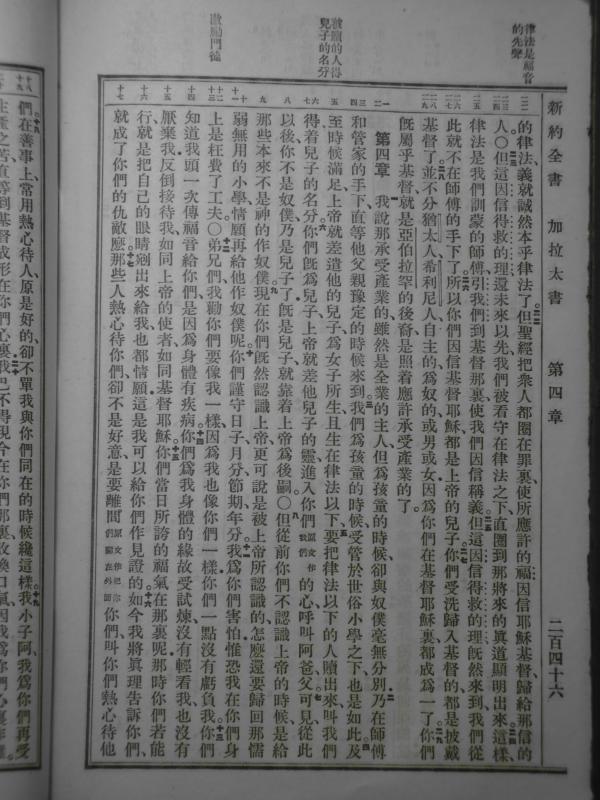 新約全書　加拉太書　第四章　二百四十六
律法是福音
的先聲
的律法、義就誠然本乎律法了但聖經把衆人都圈在罪裏、使所應許的福因信耶穌基督歸給那信的
人〇但這因信得救的理、還未來以先、我們被看守在律法之下、直圈到那將來的眞道顯明出來、這樣、
律法是我們訓蒙的師傅、引我們到基督那裏、使我們因信稱義但這因信得救的理、旣然來到、我們從
此就不在師傅的手下了所以你們因信基督耶穌都是上帝的兒子你們受洗歸入基督的、都是披戴
基督了並不分猶太人希利尼人、自主的爲奴的、或男或女、因爲你們在基督耶穌裏都成爲一了你們
旣屬乎基督就是亞伯拉罕的後裔是照着應許承受產業的了
第四章　我說那承受產業的雖然是全業的主人但爲孩童的時候、卻與奴僕毫無分別乃在師傅
和管家的手下、直等他父親豫定的時候來到我們爲孩童的時候、受管於世俗小學之下、也是如此及
至時候滿足、上帝就差遣他的兒子、爲女子所生、且生在律法以下、要把律法以下的人贖出來、叫我們
得着兒子的名分你們旣爲兒子、上帝就差他兒子的靈、進入你們原文作我們的心、呼叫阿爸父可見從此
以後、你不是奴僕、乃是兒子了、旣是兒子、就靠着上帝爲後嗣〇但從前你們不認識上帝的時候、是給
那些本來不是神的作奴僕現在你們旣然認識上帝、更可說是被上帝所認識的、怎麽還要歸回那懦
弱無用的小學、情願再給他作奴僕呢你們謹守日子月分節期年分我爲你們害怕、惟恐我在你們身
上是枉費了工夫〇弟兄們、我勸你們要像我一樣、因爲我也像你們一樣、你們一點沒有虧負我你們
知道我頭一次傳福音給你們、是因爲身體有疾病你們爲我身體的緣故受試煉、沒有輕看我、也沒有
厭棄我、反倒接待我、如同上帝的使者、如同基督耶穌你們當日所誇的福氣在那裏呢、那時你們若能
行、就是把自己的眼睛剜出來給我、也都情願、這是我可以給你們作見證的如今我將眞理告訴你們、
就成了你們的仇敵麽那些人熱心待你們、卻不是好意、是要離間原文作把你們關在外面你們、叫你們熱心待他
救贖的人得
兒子的名分
激勵門徒
們在善事上、常用熱心待人、原是好的、卻不單我與你們同在的時候纔這樣我小子阿、我爲你們再受